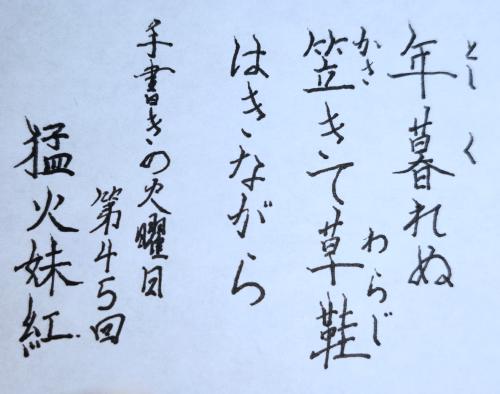 年暮れぬ
とし く
笠きて草鞋
かさ わらじ
はきながら
手書きの火曜日
第45回
猛火妹紅